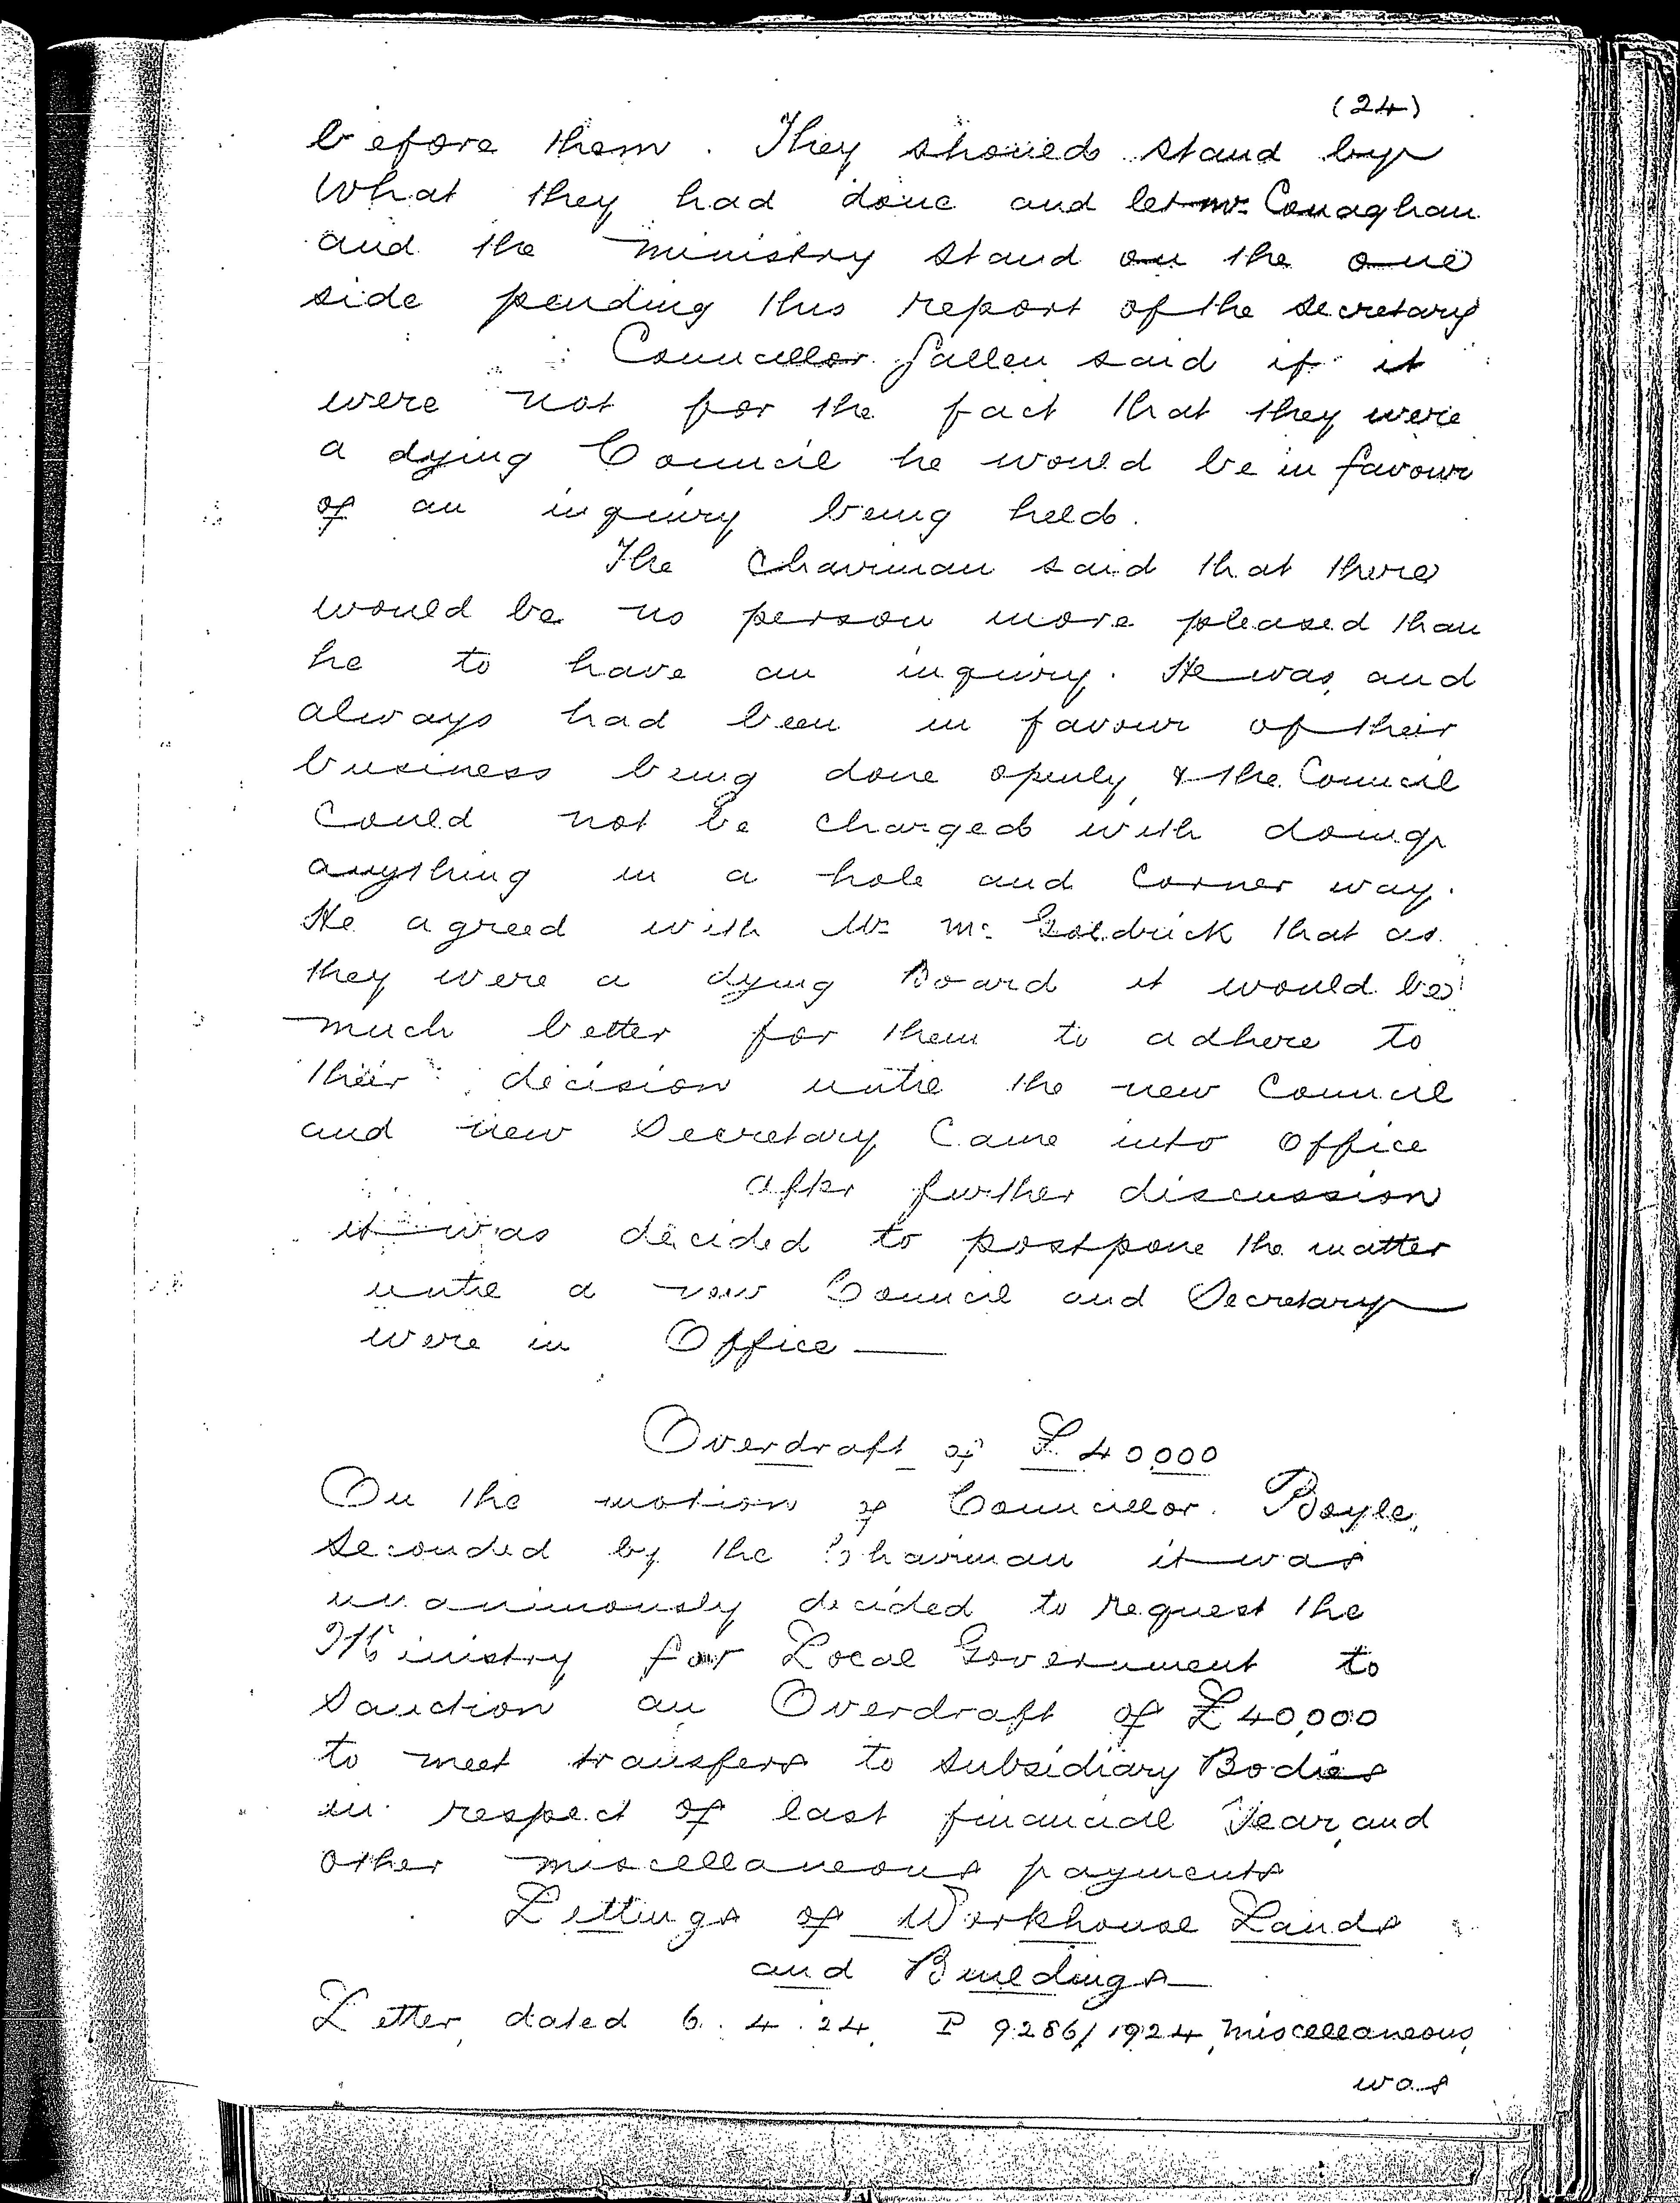 (24)
before them. They should stand by
What they had done and let Mr Conaghan
and the Ministry stand on the one
side pending this report of the secretary
Councillor Gallen said if it
were not for the fact that they were
a dying Council he would be in favour
of an inquiry being held.
The Chairman said that there
would be no person more pleased than
he to have an inquiry. He was, and
always had been in favour of their
business being done openly, & the Council
Could not be charged with doing
anything in a hole and Corner way.
He agreed with Mr McGoldrick that as
they were a dying Board it would be
much better for them to adhere to
their decision until the new Council
and new Secretary Came into Office
after further discussion
it was decided to postpone the matter
until a new Council and Secretary
were in Office —
Overdraft of £40,000
On the motion of Councillor Boyle,
seconded by the Chairman it was
unanimously decided to request the
Ministry for Local Government to
Sanction an Overdraft of £40,000
to meet transfers to subsidiary Bodies
in respect of last financial Year, and
other miscellaneous payments
Lettings of Workhouse Lands
and Buildings
Letter, dated 6.4.24, P 9286/1924, Miscellaneous,
was